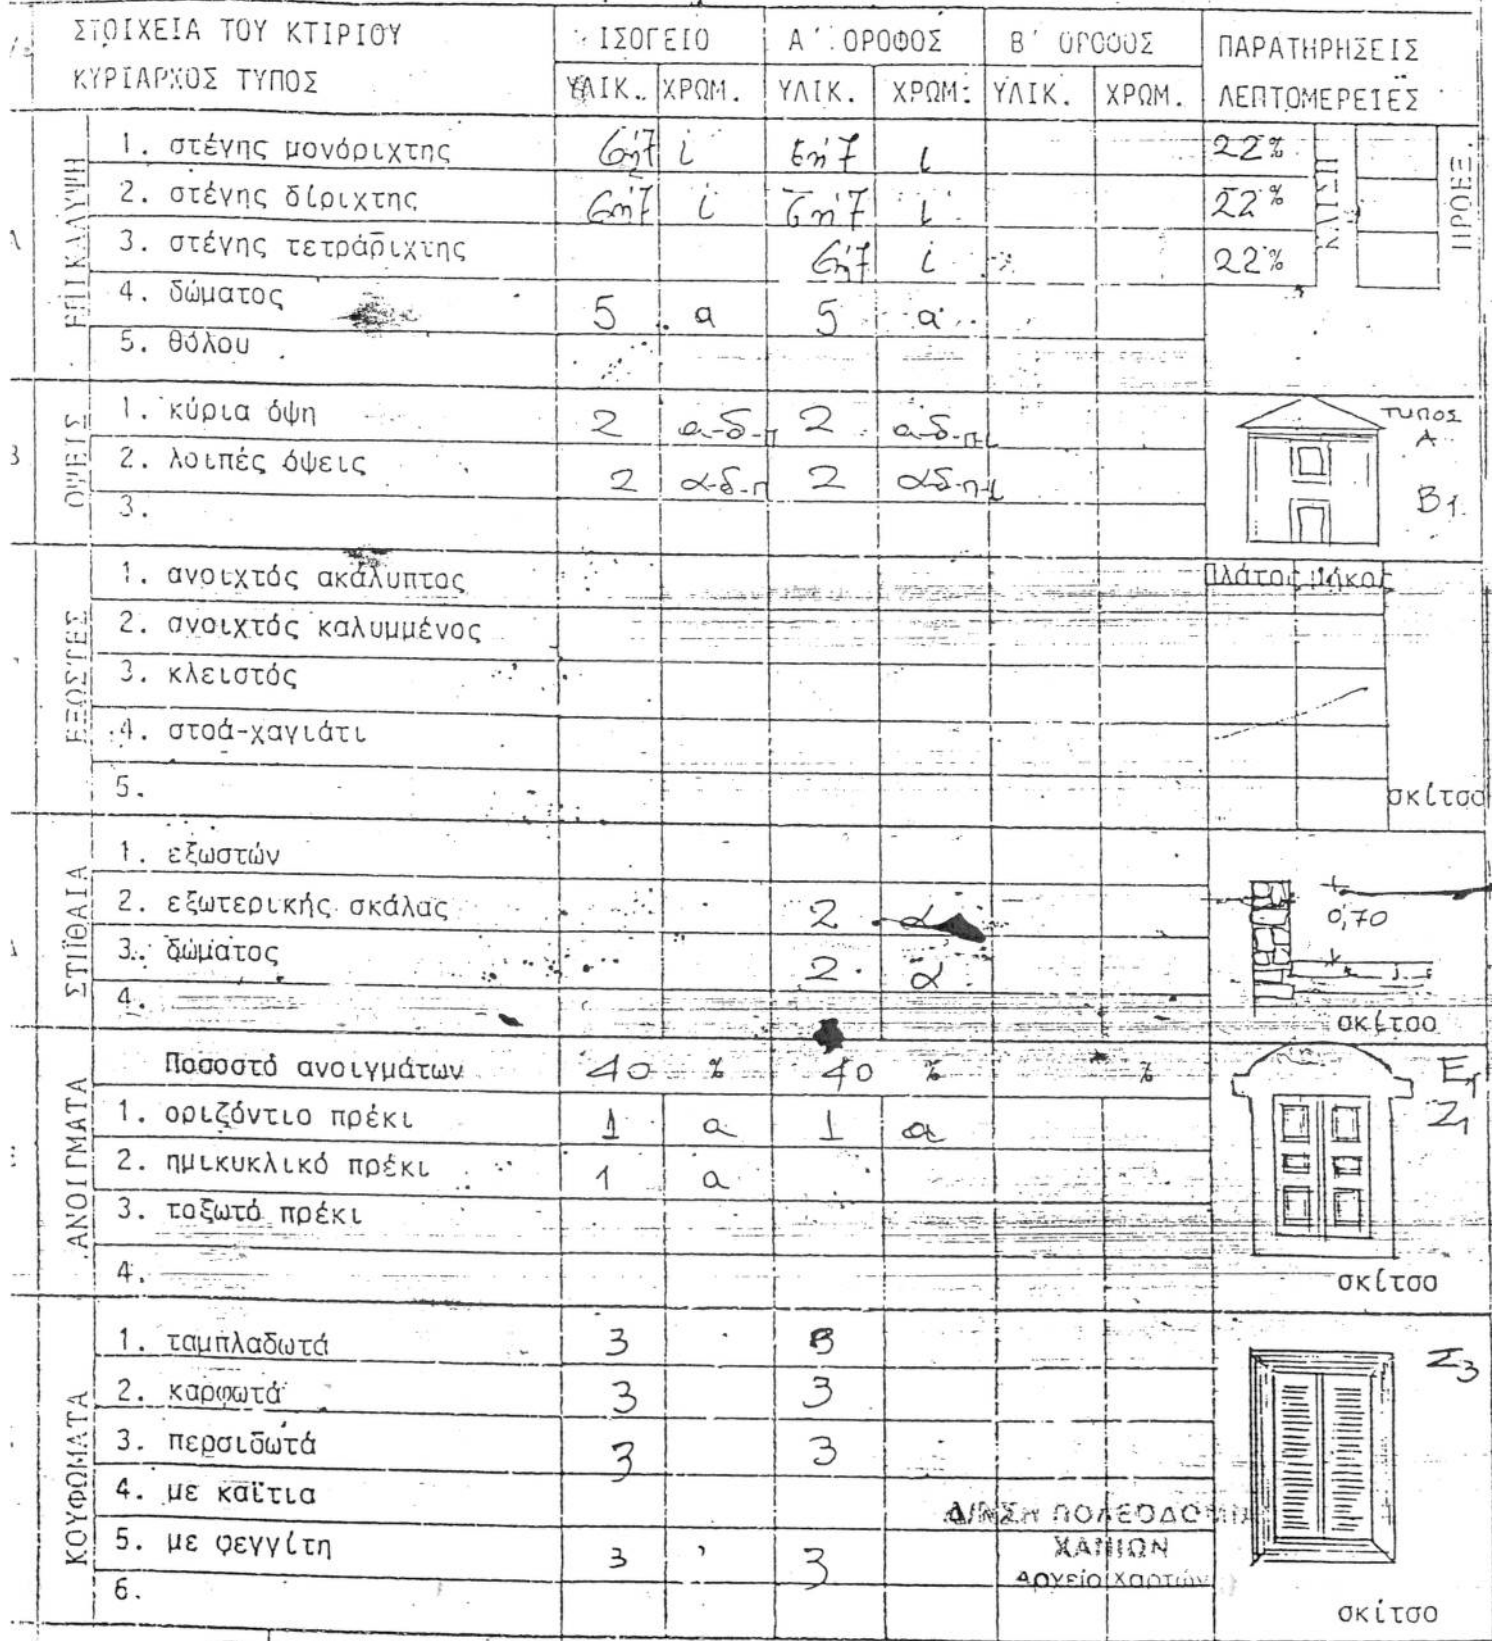 ΣΤΟΙΧΕΙΑ ΤΟΥ ΚΤΙΡΙΟΥ ΙΣΟΓΕΙΟ Α΄ ΟΡΟΦΟΣ Β΄ ΟΡΟΦΟΣ ΠΑΡΑΤΗΡΗΣΕΙΣ
ΚΥΡΙΑΡΧΟΣ ΤΥΠΟΣ ΥΛΙΚ. ΧΡΩΜ. ΥΛΙΚ. ΧΡΩΜ. ΥΛΙΚ. ΧΡΩΜ. ΛΕΠΤΟΜΕΡΕΙΕΣ
ΕΠΙΚΑΛΥΨΗ
1. στέγης μονόριχτης 6ή7 ι 6ή7 ι 22%
2. στέγης δίριχτης 6ή7 ι 6ή7 ι 22%
3. στέγης τετράριχτης 6ή7 ι 22%
ΚΛΙΣΗ
ΠΡΟΕΞ.
4. δώματος 5 α 5 α
5. θόλου
ΟΨΕΙΣ
1. κύρια όψη 2 α-δ-π 2 α-δ-π-ι ΤΥΠΟΣ
Α
2. λοιπές όψεις 2 α-δ-π 2 α-δ-π-ι Β1
3.
ΕΞΩΣΤΕΣ
1. ανοιχτός ακάλυπτος Πλάτος Μήκος
2. ανοιχτός καλυμμένος
3. κλειστός
4. στοά-χαγιάτι
5. σκίτσο
ΣΤΗΘΑΙΑ
1. εξωστών
2. εξωτερικής σκάλας 2 α 0,70
3. δώματος 2 α
4. σκίτσο
ΑΝΟΙΓΜΑΤΑ
Ποσοστό ανοιγμάτων 40 % 40 % % Ε1
1. οριζόντιο πρέκι 1 α 1 α Ζ1
2. ημικυκλικό πρέκι 1 α
3. τοξωτό πρέκι
4. σκίτσο
ΚΟΥΦΩΜΑΤΑ
1. ταμπλαδωτά 3 3 Ζ3
2. καρφωτά 3 3
3. περσιδωτά 3 3
4. με καΐτια
5. με φεγγίτη 3 3
6. σκίτσο
Δ/ΝΣΗ ΠΟΛΕΟΔΟΜΙΑΣ
ΧΑΝΙΩΝ
Αρχείο Χαρτών